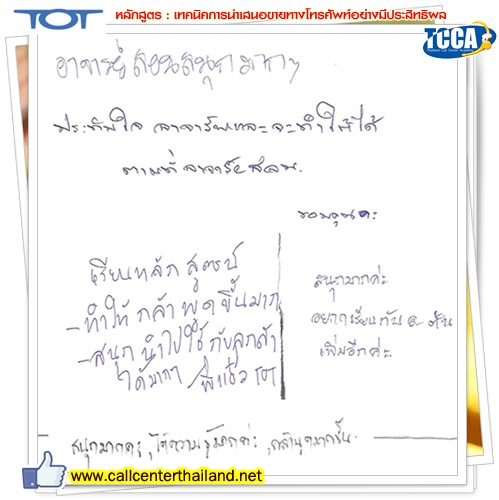 TOT
หลักสูตร : เทคนิคการนำเสนอขายทางโทรศัพท์อย่างมีประสิทธิผล
TCCA
อาจารย์สอนสนุกมากๆ
ประทับใจ อาจารย์และจะทำให้ได้
ตามที่อาจารย์สอน.
ขอบคุณค่ะ
เรียนหลักสูตรนี้
-ทำให้ กล้าพูดขึ้นมาก
-สนุก นำไปใช้กับลูกค้า
ได้มากๆ TOT
สนุกมากค่ะ
อยากเรียนกับ อ.
เพิ่มอีกค่ะ
สนุกมากค่ะ, ได้ความรู้มากค่ะ, กล้าพูดมากขึ้น.
www.callcenterthailand.net